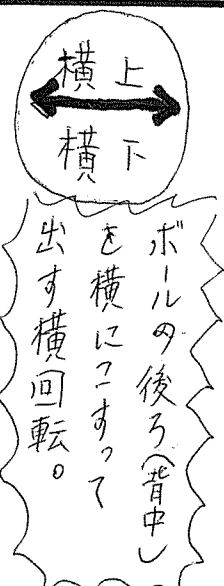 横上
横下
ボールの後ろ(背中)
を横にこすって
出す横回転。